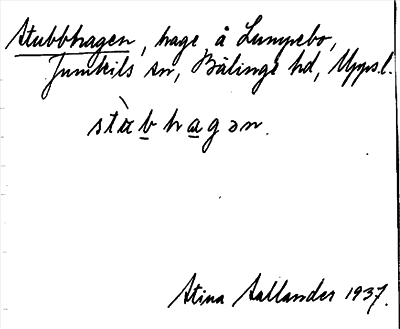 Stubbhagen, hage å Lumpebo,
Jumkils sn, Bälinge hd, Uppsl.
stu̇̀bhagən.
Stina Aallander 1937.